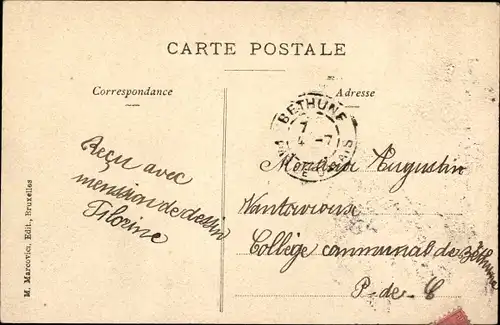 CARTE POSTALE
Correspondance
Adresse
BETHUNE
7
4 -7
PAS-DE-CALAIS
Reçu avec
mention de dessin
Monsieur Augustin
Collège communal de Béthune
P-de-C
M. Marcovici, Edit., Bruxelles